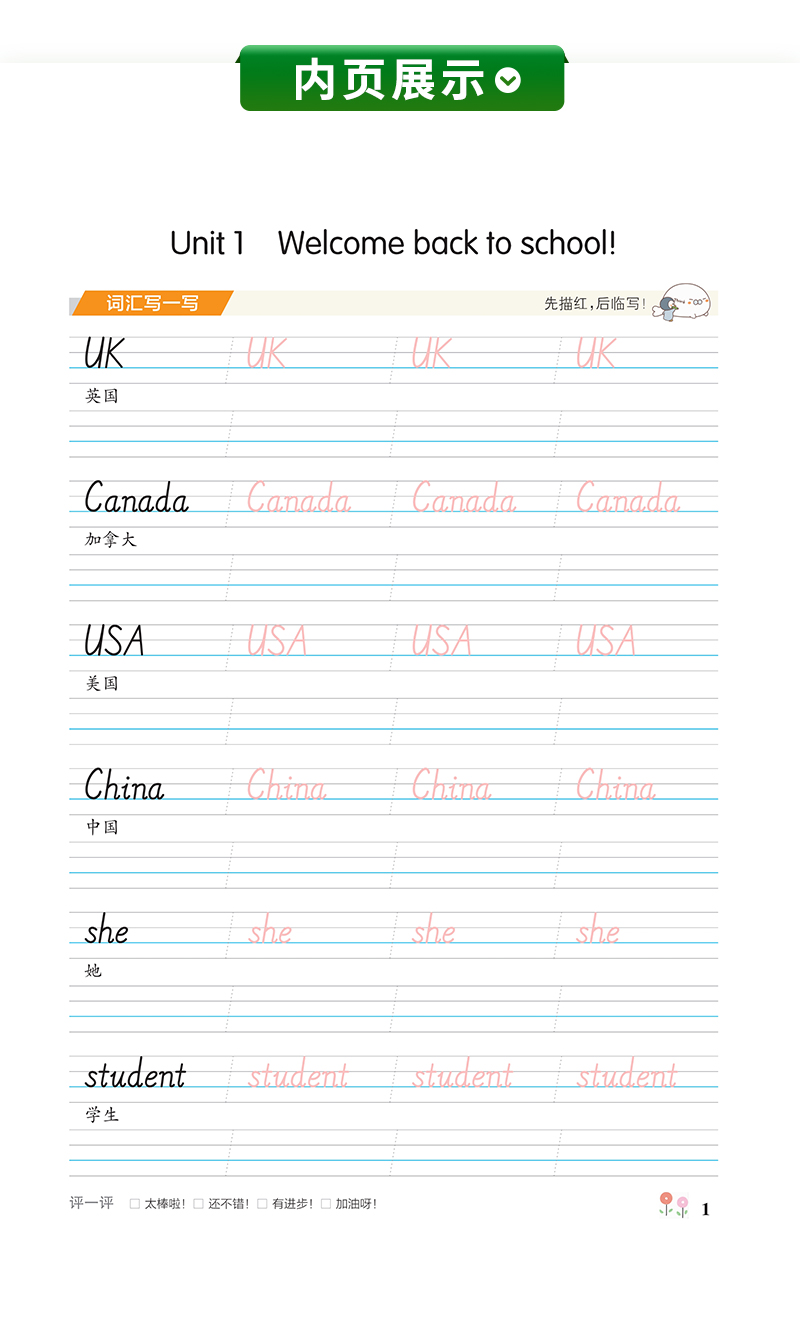 内页展示
Unit 1 Welcome back to school!
词汇写一写 先描红,后临写!
UK UK UK UK
英国
Canada Canada Canada Canada
加拿大
USA USA USA USA
美国
China China China China
中国
she she she she
她
student student student student
学生
评一评 □ 太棒啦! □ 还不错! □ 有进步! □ 加油呀! 1